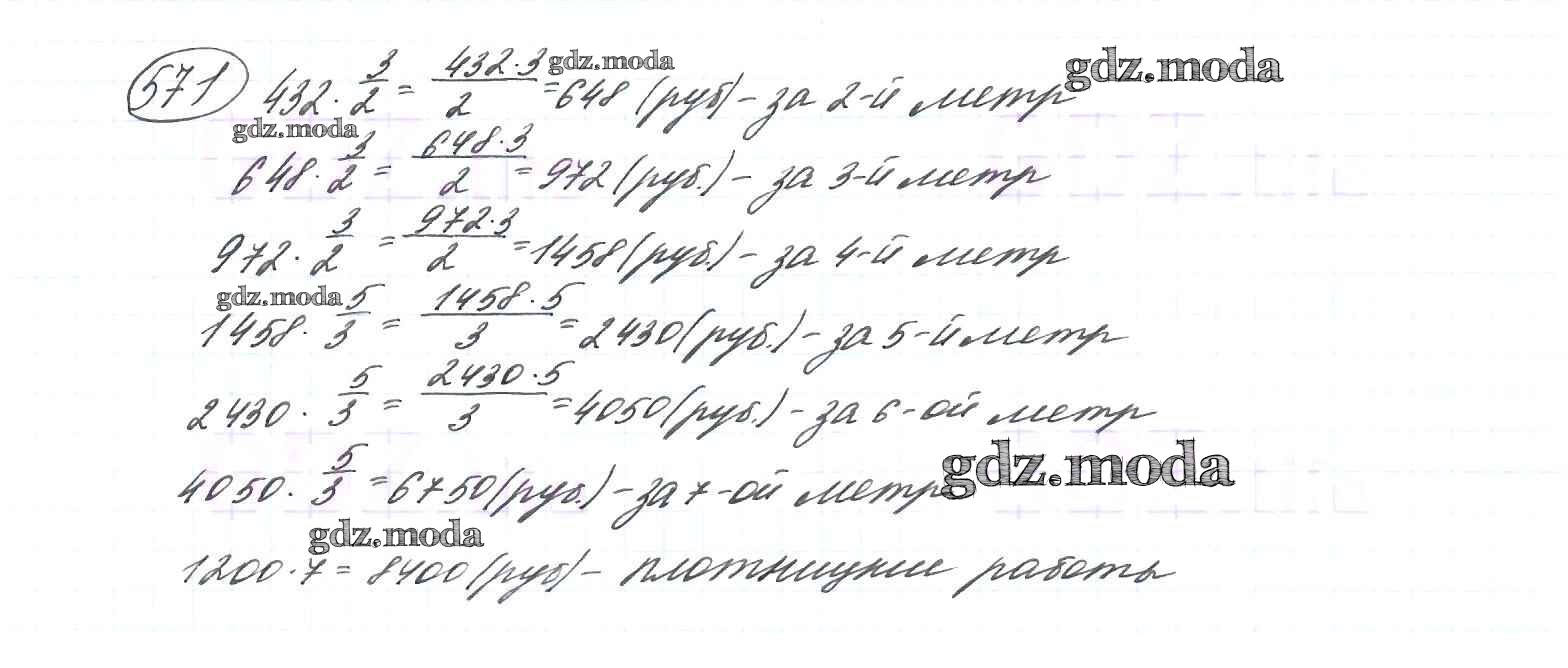 571 432 · 3/2 = 432·3/2 = 648 (руб) – за 2-й метр
gdz.moda gdz.moda
gdz.moda
648 · 3/2 = 648·3/2 = 972 (руб.) – за 3-й метр
972 · 3/2 = 972·3/2 = 1458 (руб.) – за 4-й метр
gdz.moda
1458 · 5/3 = 1458·5/3 = 2430 (руб.) – за 5-й метр
2430 · 5/3 = 2430·5/3 = 4050 (руб.) – за 6-ой метр
4050 · 5/3 = 6750 (руб.) – за 7-ой метр
gdz.moda
gdz.moda
1200·7 = 8400 (руб) – плотницкие работы